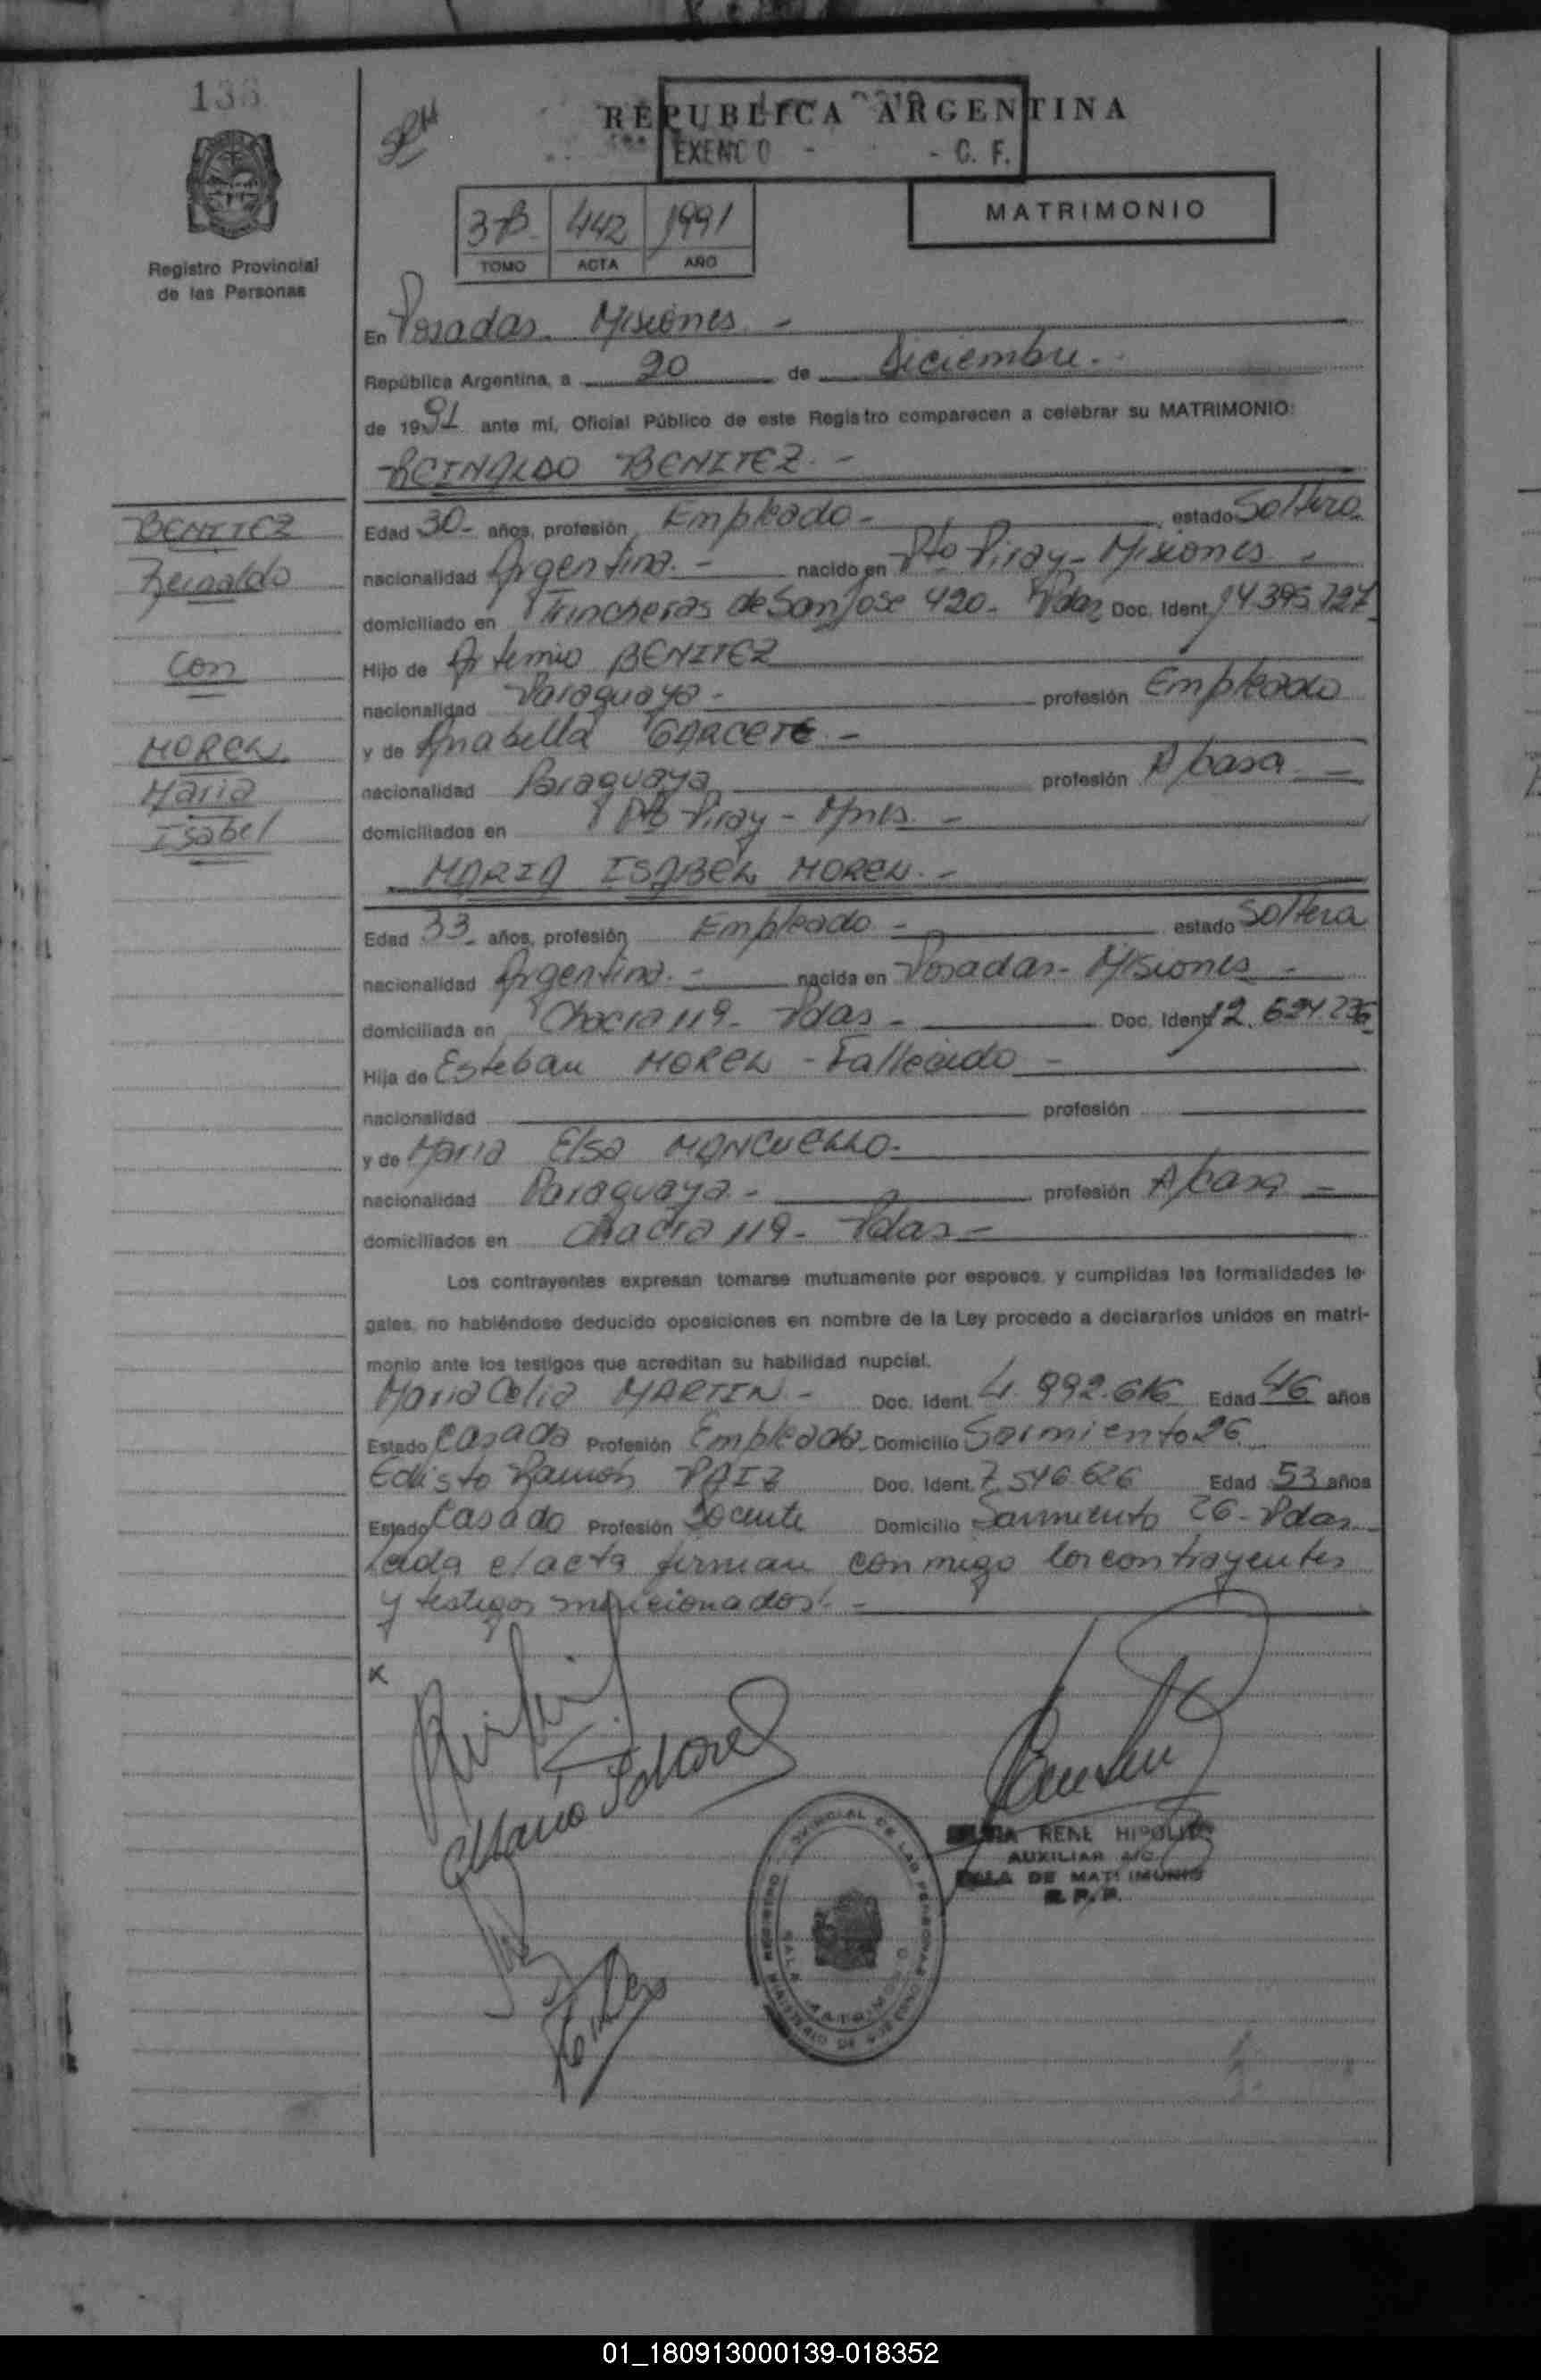 REPUBLICA ARGENTINA
EXENTO - - C. F.
MATRIMONIO
3-B 442 1991
TOMO ACTA AÑO
Registro Provincial
de las Personas
En Posadas Misiones -
República Argentina, a 20 de Diciembre.
de 1991 ante mí, Oficial Público de este Registro comparecen a celebrar su MATRIMONIO:
REINALDO BENITEZ. -
BENITEZ
Reinaldo
con
MOREL
Maria
Isabel
Edad 30- años, profesión Empleado - estado Soltero
nacionalidad Argentina. - nacido en Pto Piray - Misiones -
domiciliado en Trincheras de San Jose 420- Pdas Doc. Ident. 14.395.727
Hijo de Artemio BENITEZ
nacionalidad Paraguaya - profesión Empleado
y de Anabella GARCETE -
nacionalidad Paraguaya profesión A/casa -
domiciliados en Pto Piray - Mnes. -
MARIA ISABEL MOREL. -
Edad 33- años, profesión Empleado - estado Soltera
nacionalidad Argentina. - nacida en Posadas - Misiones -
domiciliada en Chacra 119- Pdas - Doc. Ident. 12.624.236
Hija de Esteban MOREL - Fallecido -
nacionalidad profesión
y de Maria Elsa MANCUELLO.
nacionalidad Paraguaya - profesión A/casa -
domiciliados en Chacra 119- Pdas -
Los contrayentes expresan tomarse mutuamente por esposos, y cumplidas las formalidades le-
gales, no habiéndose deducido oposiciones en nombre de la Ley procedo a declararlos unidos en matri-
monio ante los testigos que acreditan su habilidad nupcial.
Maria Celia MARTIN - Doc. Ident. 4.992.616 Edad 46 años
Estado Casada Profesión Empleada Domicilio Sarmiento 26
Edisto Ramón PAIZ Doc. Ident. 7.546.626 Edad 53 años
Estado Casado Profesión Docente Domicilio Sarmiento 26- Pdas
Leida el acta firman conmigo los contrayentes
y testigos mencionados. -
RENE HIPOLITO
AUXILIAR A/C
SALA DE MATRIMONIO
R. P. P.
01_180913000139-018352